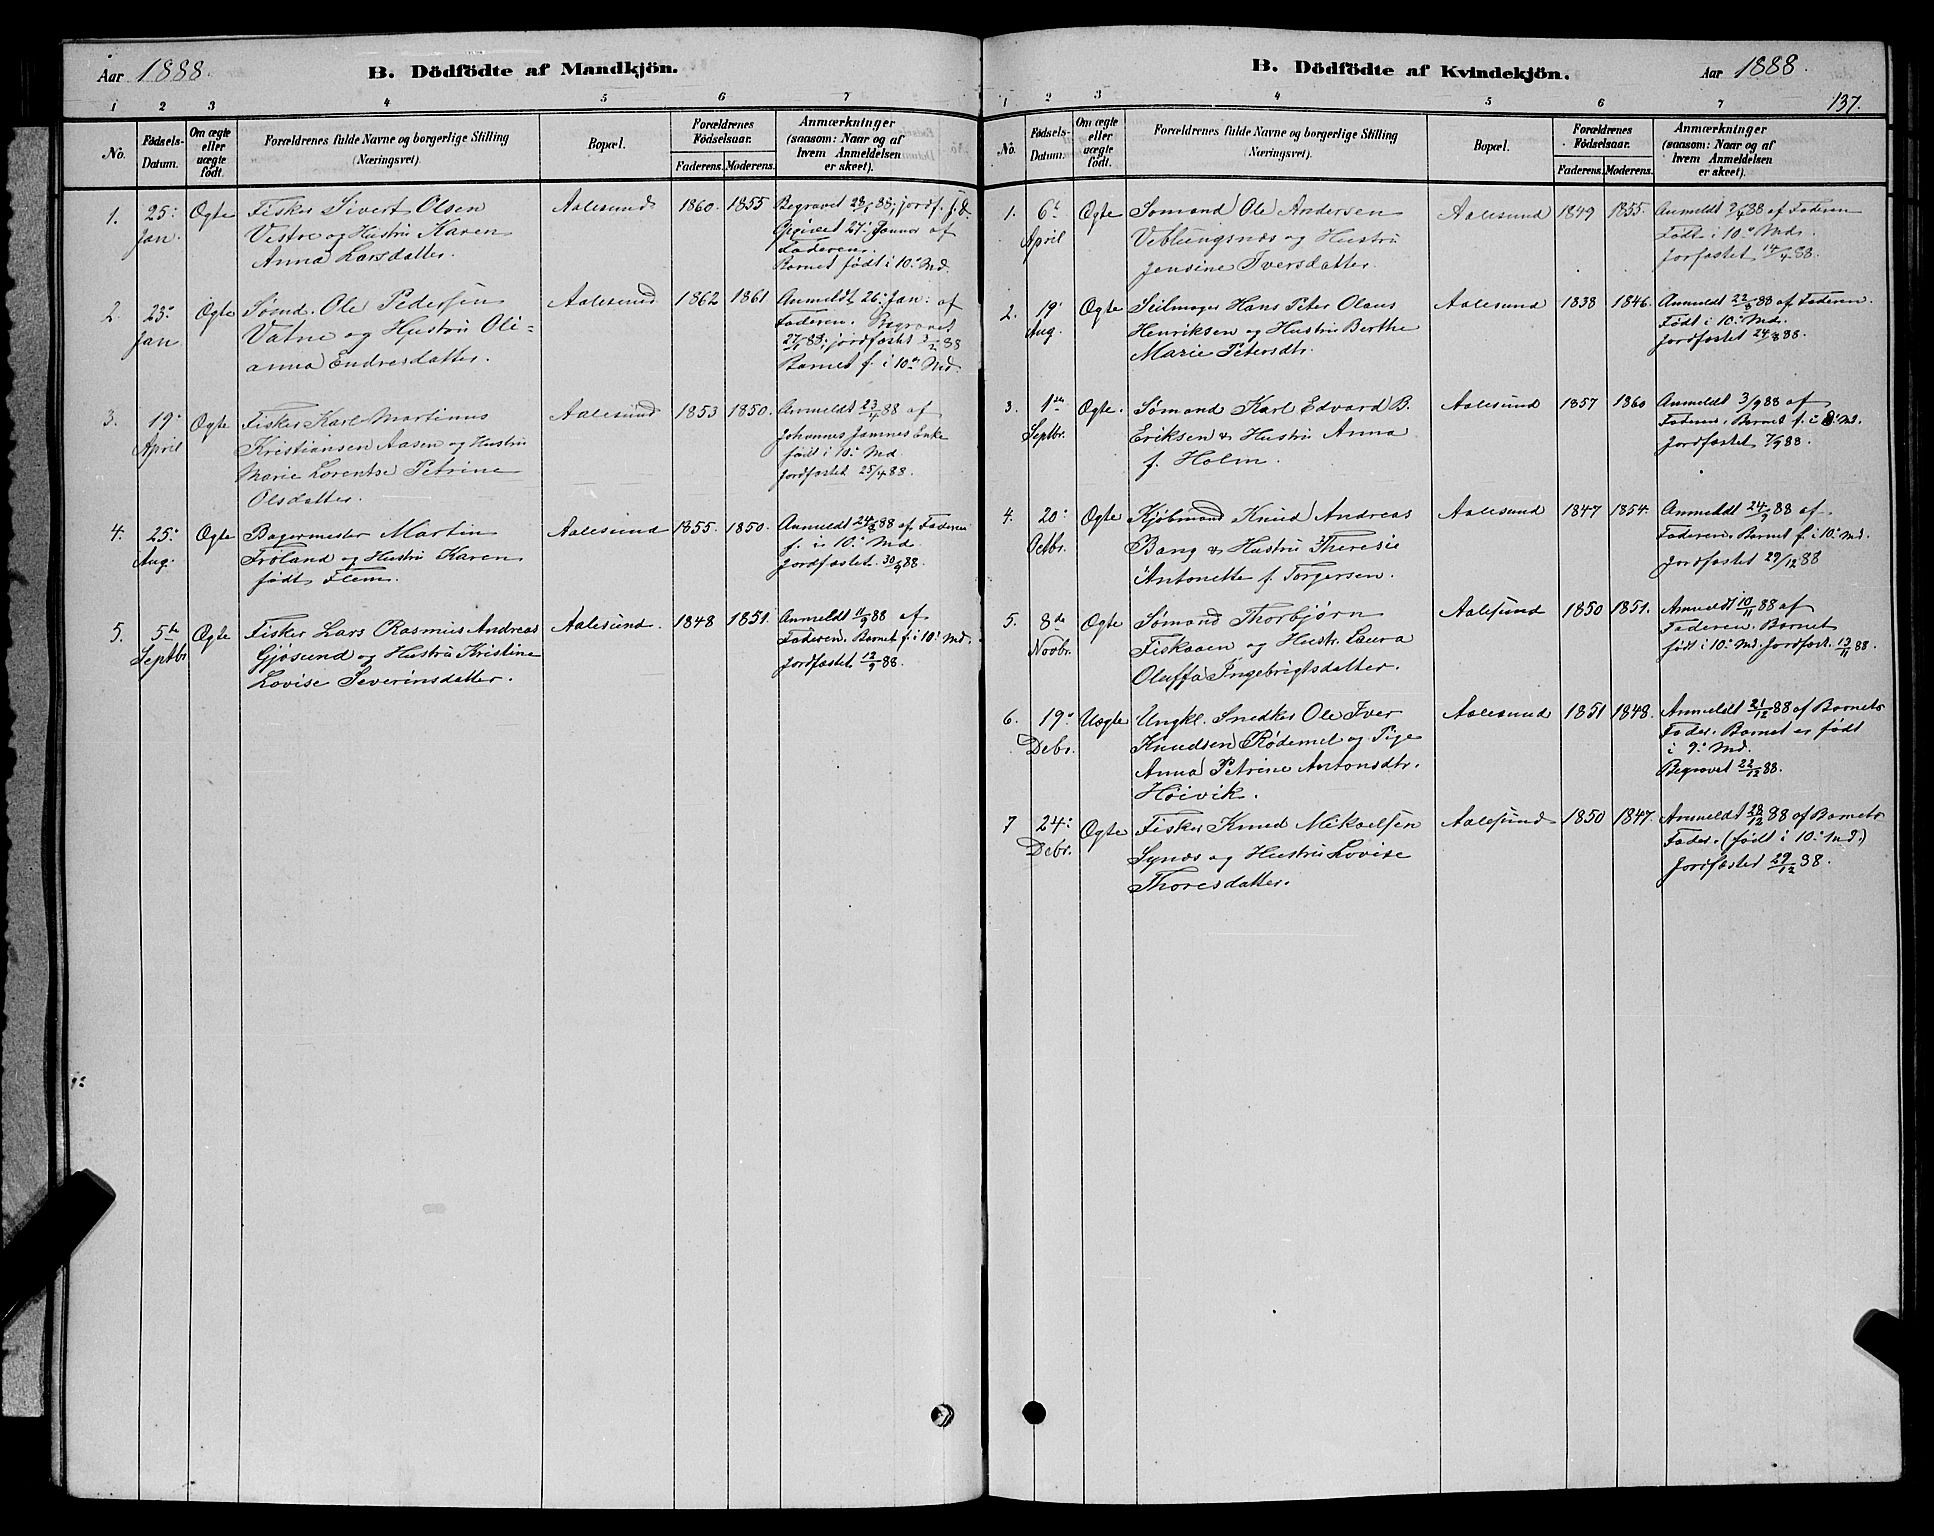 Aar 1888.
B. Dödfödte af Mandkjön.
1 2 3 4 5 6 7
No.
Fødsels-
Datum.
Om ægte
eller
uægte
født.
Forældrenes fulde Navne og borgerlige Stilling
(Næringsvei).
Bopæl.
Forældrenes
Fødselsaar.
Faderens. Moderens.
Anmærkninger
(saasom: Naar og af
hvem Anmeldelsen
er skeet).
1. 25: Jan. Ægte
Fisker Sivert Olsen
Vestre og Hustru Karen
Anna Larsdatter.
Aalesund 1860. 1855
Begravet 28/1 88, jordf. s. d.
Opgivet 27. Januar af
Faderen.
Barnet født i 10: Md.
2. 23: Jan Ægte
Sømd. Ole Pedersen
Vatne og Hustru Oli-
anna Endresdatter.
Aalesund 1862 1861
Anmeldt 26: Jan: af
Faderen. Begravet
27/1 88; jordfæstet 3/2 88
Barnet f. i 10de Md.
3. 19: April Ægte
Fisker Karl Martinus
Kristiansen Aasen og Hustru
Marie Lorentse Petrine
Olsdatter.
Aalesund 1853 1850.
Anmeldt 23/4 88 af
Johannes Jamnes Enke
født i 10: Md
Jordfæstet 25/4 88.
4. 25: Aug. Ægte
Bagermester Martin
Frøland og Hustru Karen
født Flem.
Aalesund 1855. 1850.
Anmeldt 24/8 88 af Faderen
f. i 10: Md.
Jordfæstet 30/8 88.
5. 5te Septbr Ægte
Fisker Lars Rasmus Andreas
Gjøsund og Hustru Kristine
Lovise Severinsdatter.
Aalesund. 1848 1851.
Anmeldt 11/9 88 af
Faderen. Barnet f. i 10: Md.
Jordfæstet 12/9 88.
B. Dödfödte af Kvindekjön.
Aar 1888.
137.
1 2 3 4 5 6 7
No.
Fødsels-
Datum.
Om ægte
eller
uægte
født.
Forældrenes fulde Navne og borgerlige Stilling
(Næringsvei).
Bopæl.
Forældrenes
Fødselsaar.
Faderens. Moderens.
Anmærkninger
(saasom: Naar og af
hvem Anmeldelsen
er skeet).
1. 6t April Ægte
Sømand Ole Andersen
Veblungsnæs og Hustru
Jensine Iversdatter.
Aalesund 1849 1855.
Anmeldt 9/4 88 af Faderen
Født i 10: Md.
Jorfæstet 14/4 88.
2. 19: Aug. Ægte
Seilmager Hans Peter Olaus
Henriksen og Hustru Berthe
Marie Petersdtr.
Aalesund 1838 1846.
Anmeldt 22/8 88 af Faderen.
Født i 10: Md.
Jordfæstet 24/8 88.
3. 1ste Septbr. Ægte.
Sømand Karl Edvard B.
Eriksen & Hustru Anna
f. Holm.
Aalesund 1857 1860
Anmeldt 3/9 88 af
Faderen. Barnet f. i 8: Md.
Jordfæstet 7/9 88.
4. 20: Octbr. Ægte
Kjøbmand Knud Andreas
Bang & Hustru Theresie
Antonette f. Torgersen.
Aalesund 1847 1854.
Anmeldt 24/9 88 af
Faderen. Barnet f. i 10: Md.
Jordfæstet 29/12 88
5. 8de Novbr. Ægte
Sømand Thorbjørn
Fiskaaen og Hustr. Laura
Oluffa Ingebrigtsdatter.
Aalesund 1850 1851.
Anmeldt 10/11 88 af
Faderen. Barnet
født i 10: Md. Jordfæst. 13/11 88.
6. 19: Debr. Uægte
Ungkl. Snedker Ole Iver
Knudsen Rødemel og Pige
Anna Petrine Antonsdtr.
Høivik.
Aalesund 1851 1848.
Anmeldt 21/12 88 af Barnets
Fader. Barnet er født
i 9: Md.
Begravet 22/12 88.
7 24: Debr. Ægte
Fisker Knud Mikaelsen
Synæs og Hustru Lovise
Thoresdatter.
Aalesund 1850 1847.
Anmeldt 28/12 88 af Barnets
Fader. (født i 10: Md.)
Jordfæstet 29/12 88.